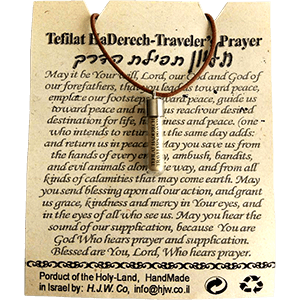 Tefilat HaDerech-Traveler's Prayer
תליון תפילת הדרך
May it be Your will, Lord, our God and God of
our forefathers, that You lead us toward peace,
emplace our footsteps toward peace, guide us
toward peace and make us reach our desired
destination for life, happiness and peace. (one
who intends to return the same day adds:
and return us in peace) May you save us from
the hands of every enemy, ambush, bandits,
and evil animals along the way, and from all
kinds of calamities that may come earth. May
you send blessing upon all our action, and grant
us grace, kindness and mercy in Your eyes, and
in the eyes of all who see us. May you hear the
sound of our supplication, because You are
God Who hears prayer and supplication.
Blessed are You, Lord, Who hears prayer.
Product of the Holy-Land, HandMade
in Israel by: H.J.W. Co, info@hjw.co.il